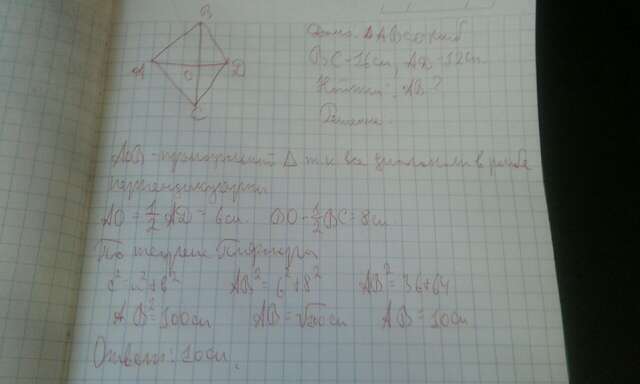 B
A
O
D
C
Дано: ABCD ромб
BC = 16см, AD = 12см
Найти: AB?
Решение.
AOB - прямоугольный Δ т.к все диагонали в ромбе
перпендикулярны
AO = 1/2 AD = 6см BO = 1/2 BC = 8см
По теореме Пифагора
c² = a² + b² AB² = 6² + 8² AB² = 36 + 64
AB² = 100см AB = √100см AB = 10см
Ответ: 10см.